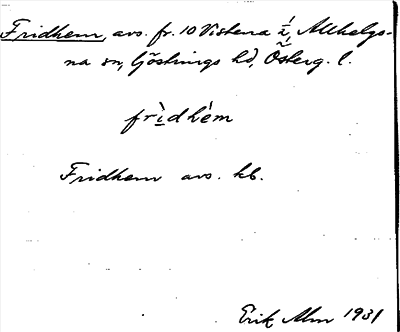 Fridhem, avs. fr. 10 Vistena 1/2, Allhelgo-
na sn, Göstrings hd, Österg. l.
frìdhèm
Fridhem avs. kb.
Erik Alm 1931